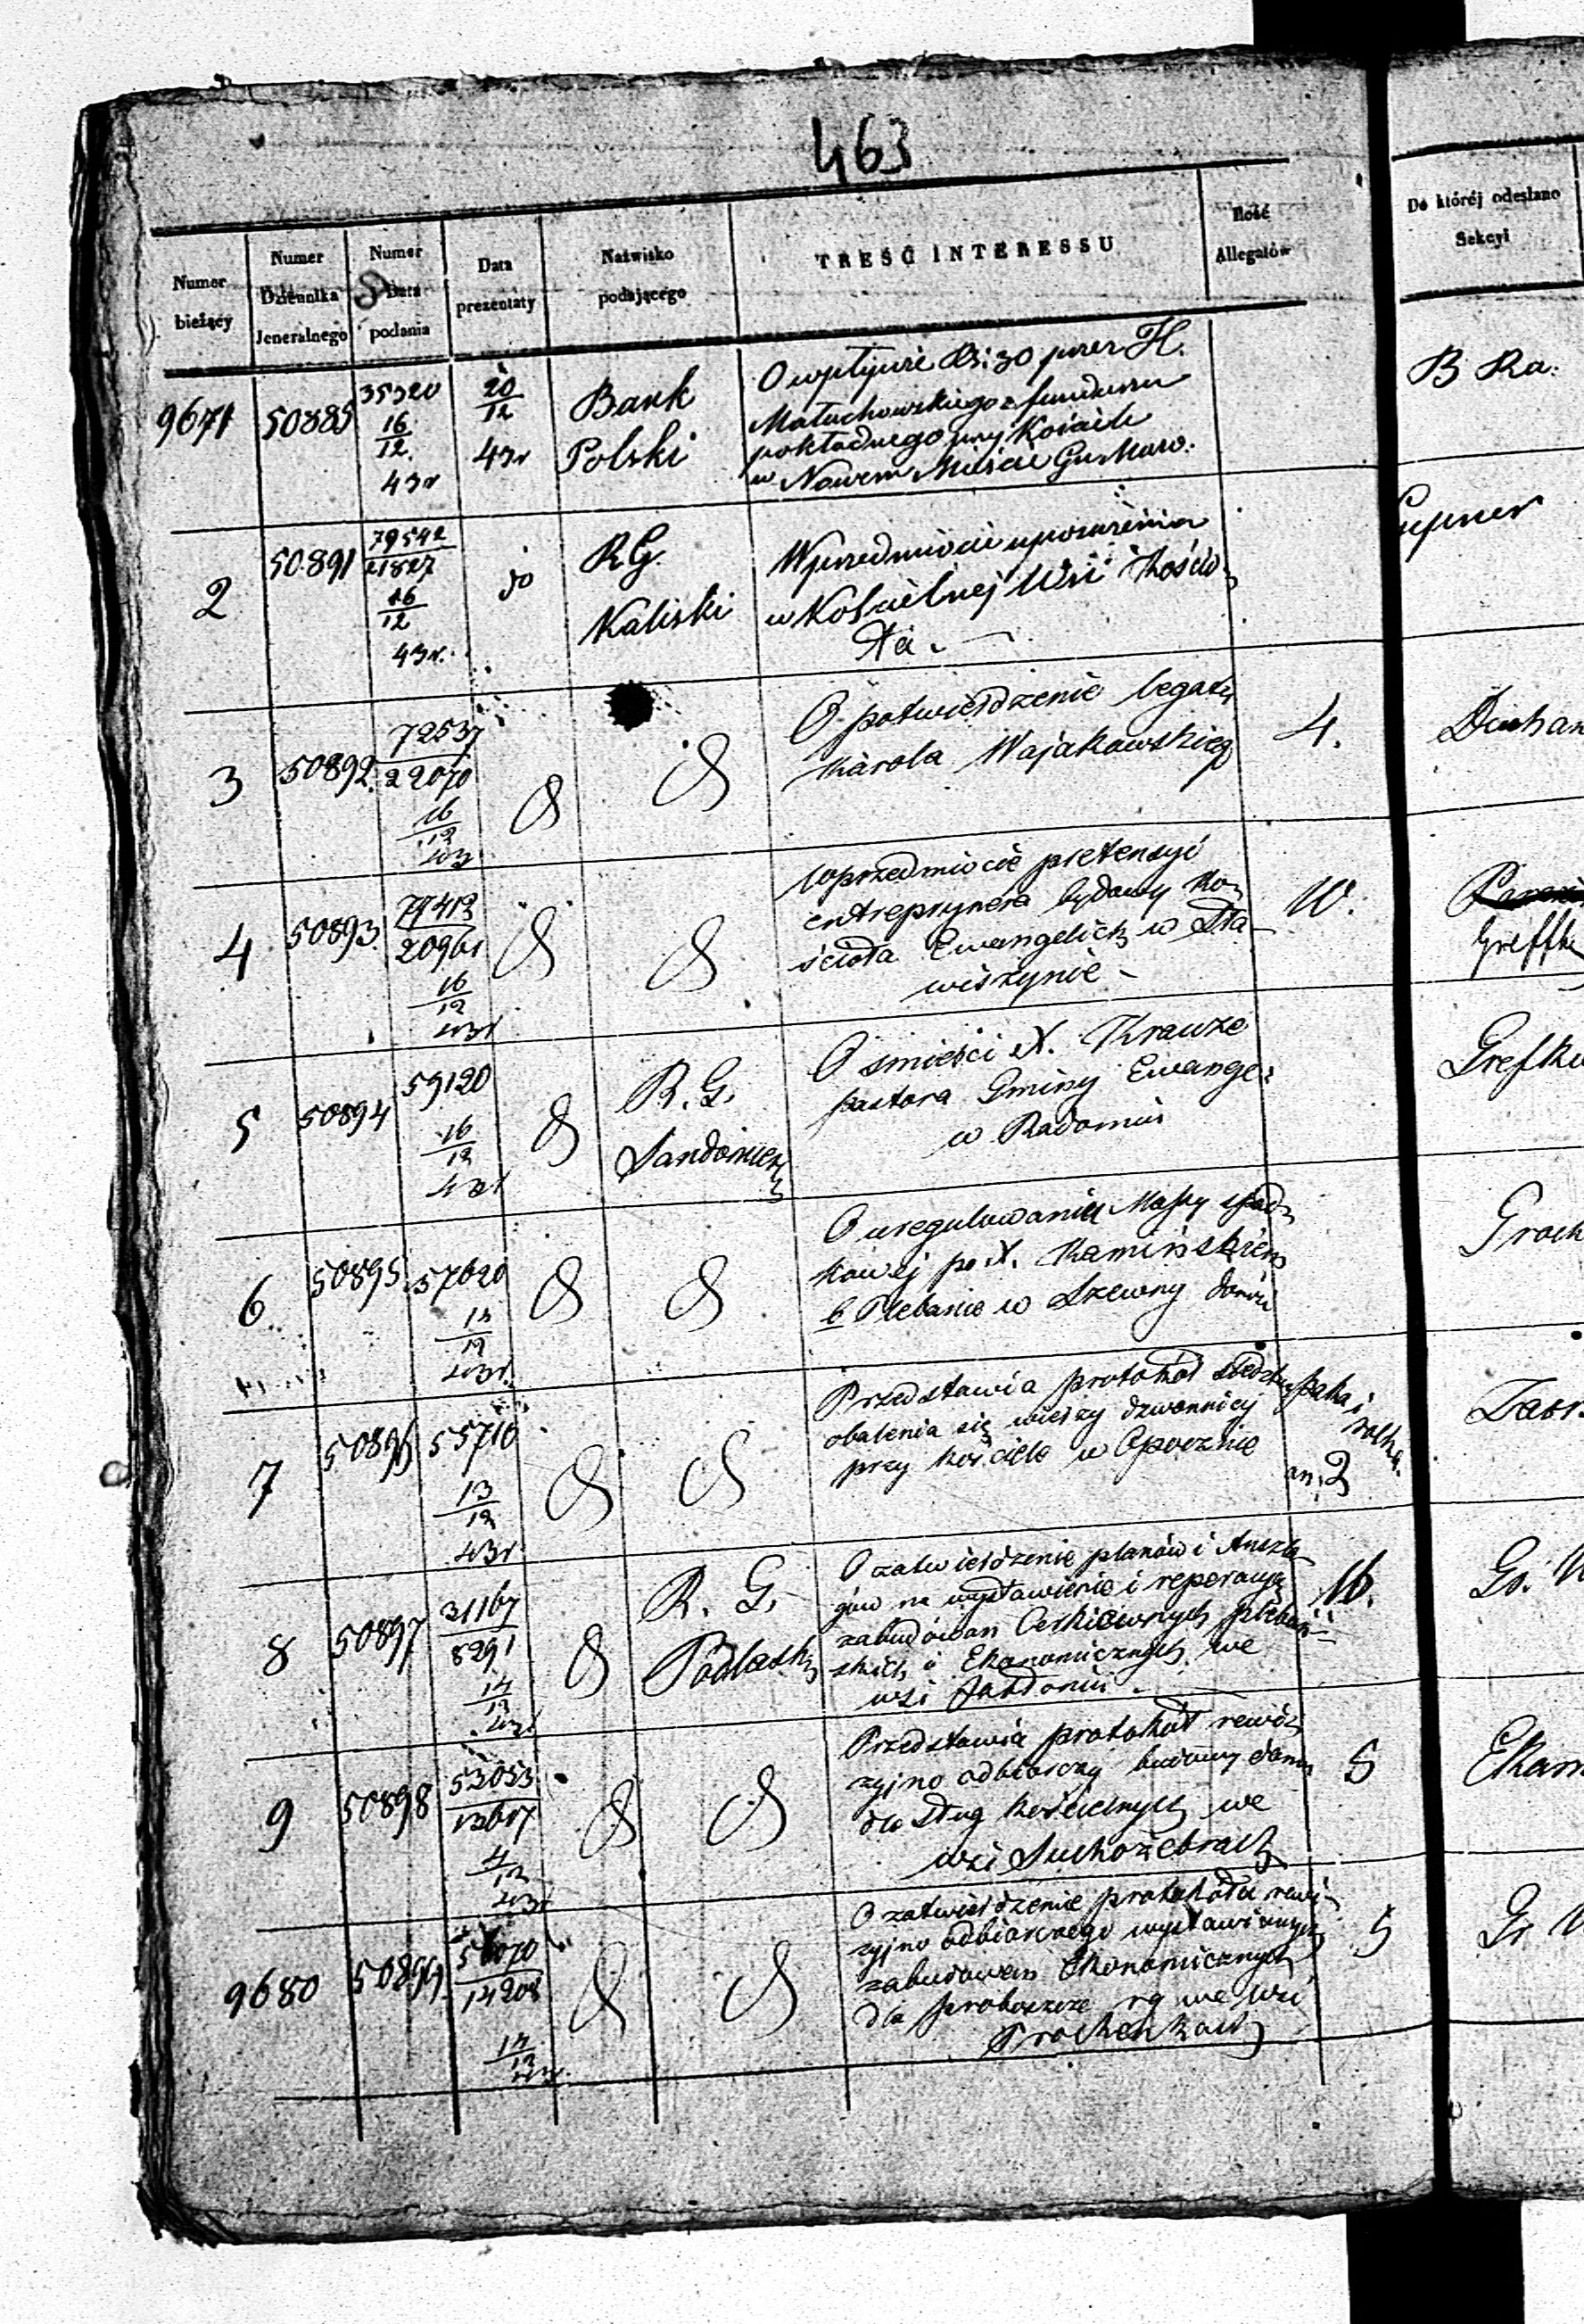 463
Numer bieżący
Numer Dziennika Jeneralnego
Numer Data podania
Data prezentaty
Nazwisko podającego
TREŚĆ INTERESSU
Ilość Allegatów
Do któréj odesłano Sekcyi
9671 50885 35320 16/12 43r 20/12 43r
Bank
Polski
O wpływie Rs: 30 przez H.
Małachowskiego z funduszu
pokładnego przy Kościele
w Nowem Mieście Gu Mazo.
B Ra:
2 50891 79542/21827 16/12 43r. do
R.G.
Kaliski
W przedmiocie uposażenia
w Kościelnej Wsi Kościo
ła.
3 50892 72537/22070 16/12 43
O potwierdzenie legatu
Karola
4.
4 50893 20961 16/12 43r
W przedmiocie pretensyi
entreprynera budowy Ko
ścioła Ewangelick w Sta
wiszynie
10.
5 50894 59120 16/12 43r
R. G.
Sandomier
O śmierci X. Krauze
pastora Gminy Ewange:
w Radomiu
6 50895 57620 43r.
O uregulowaniu Massy spad
kowej po X. Kamińskiem
b Plebanie w
7 50896 55716 13/12 43r
Przedstawia protokół
obalenia się wieszy dzwonnicy
przy kościele w Opocznie
2
8 50897 31167/8291 43r
R. G.
Podlaski
O zatwierdzenie planów i Anszla
gów na wystawienie i reperacyą
zabudowań Cerkiewnych plebań
skich i Ekonomicznych we
wsi
16.
9 50898 53053 4/12 43r
Przedstawia protokół rewi
zyjno odbiorczy budowy domu
dla sług kościelnych we
wsi Suchożebrach
5
9680 50899 14208 43r.
O zatwierdzenie protokółu rewi
zyjno odbiorczego wystawionych
zabudowań Ekonomicznych
dla proboszcza rg we wsi
5